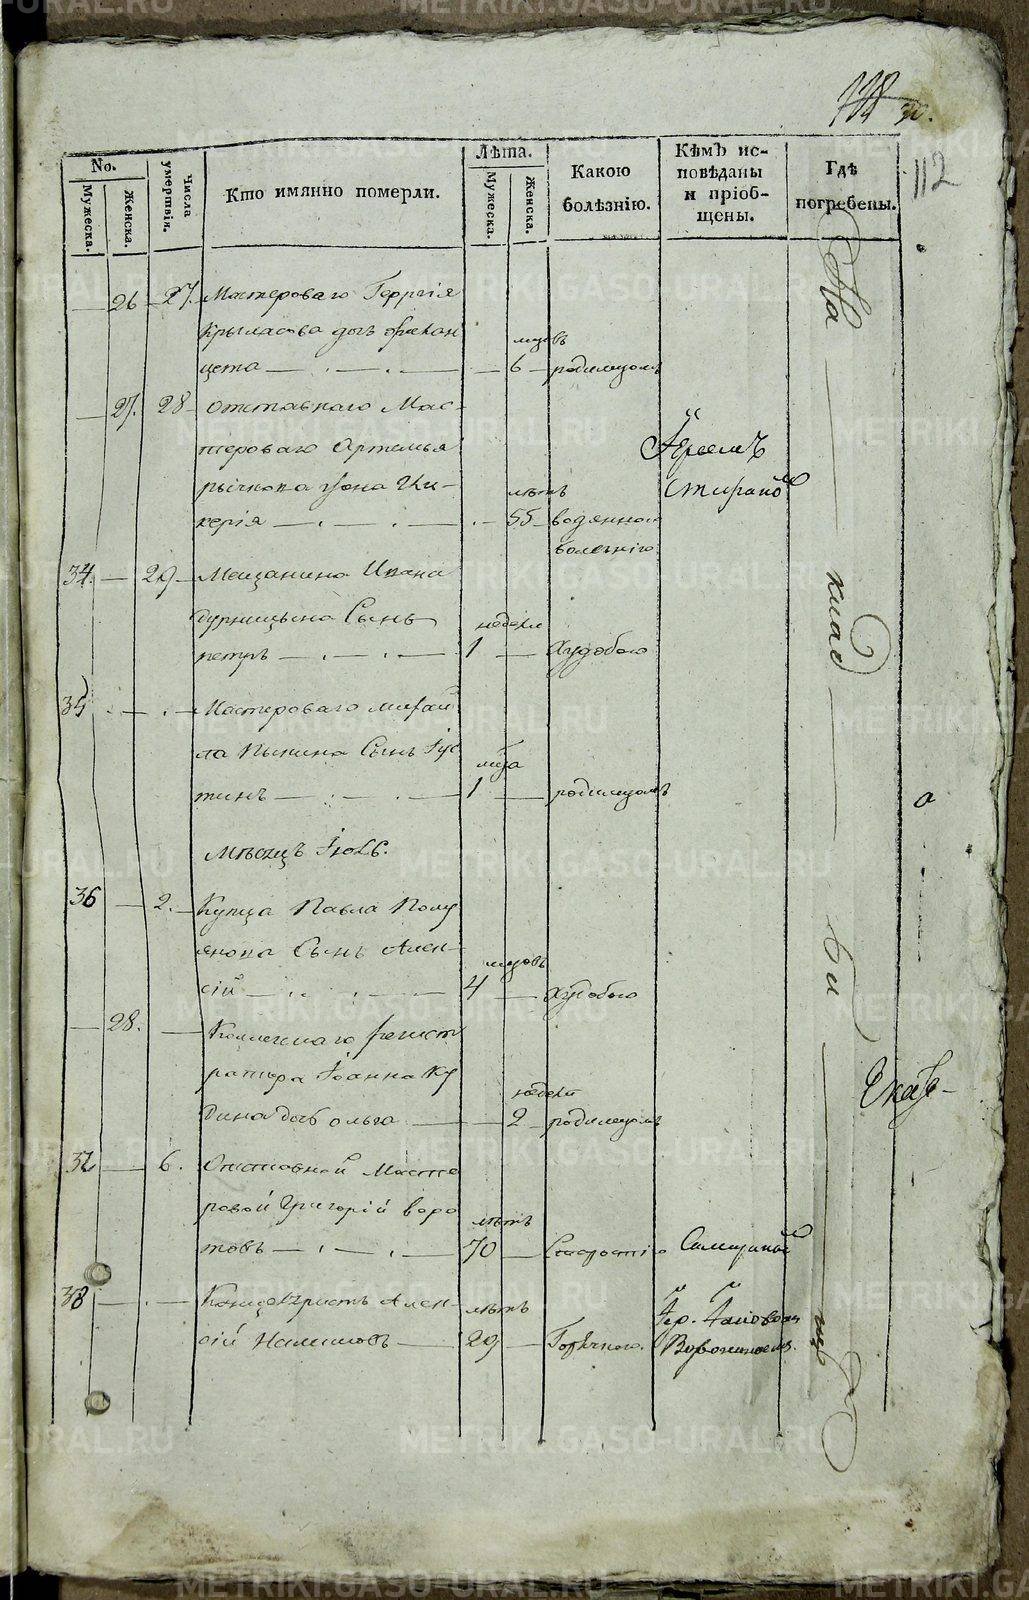 30.
112
No.
Мужеска.
Женска.
Числа умертвія.
Кто имянно померли.
Лѣта.
Мужеска.
Женска.
Какою болѣзнію.
Кѣмъ исповѣданы и пріобщены.
Гдѣ погребены.
26 27. Мастероваго Георгія
Крыласова дочь
мцовъ
6 родимцомъ
27. 28 отставнаго Мас-
тероваго Артемья
Рычкова жена Гли-
керія
лѣтъ
55 водянною
болезнію
Іереемъ
34. 29 Мещанина Ивана
Сынъ
петръ
недели
1 Худобою
35 Мастероваго Михаи
ла Пьянина Сынъ Іус
тинъ
мца
1 родимцомъ
Мѣсяцъ Іюль.
36 2. Купца Павла Полу
янова Сынъ Алек-
сій
мцовъ
4 Худобою
28. Коллежкаго регист
ратора Іоанна Ку
дина дочь ольга
недели
2 родимцомъ
37 6. Отставной Масте
ровой Григорій воро
товъ
лѣтъ
70 Старостію
38 Канцеляристъ Алек-
сій
лѣтъ
29 Горячкою.
Іер. Іаковомъ
На кладбищѣ
METRIKI.GASO-URAL.RU